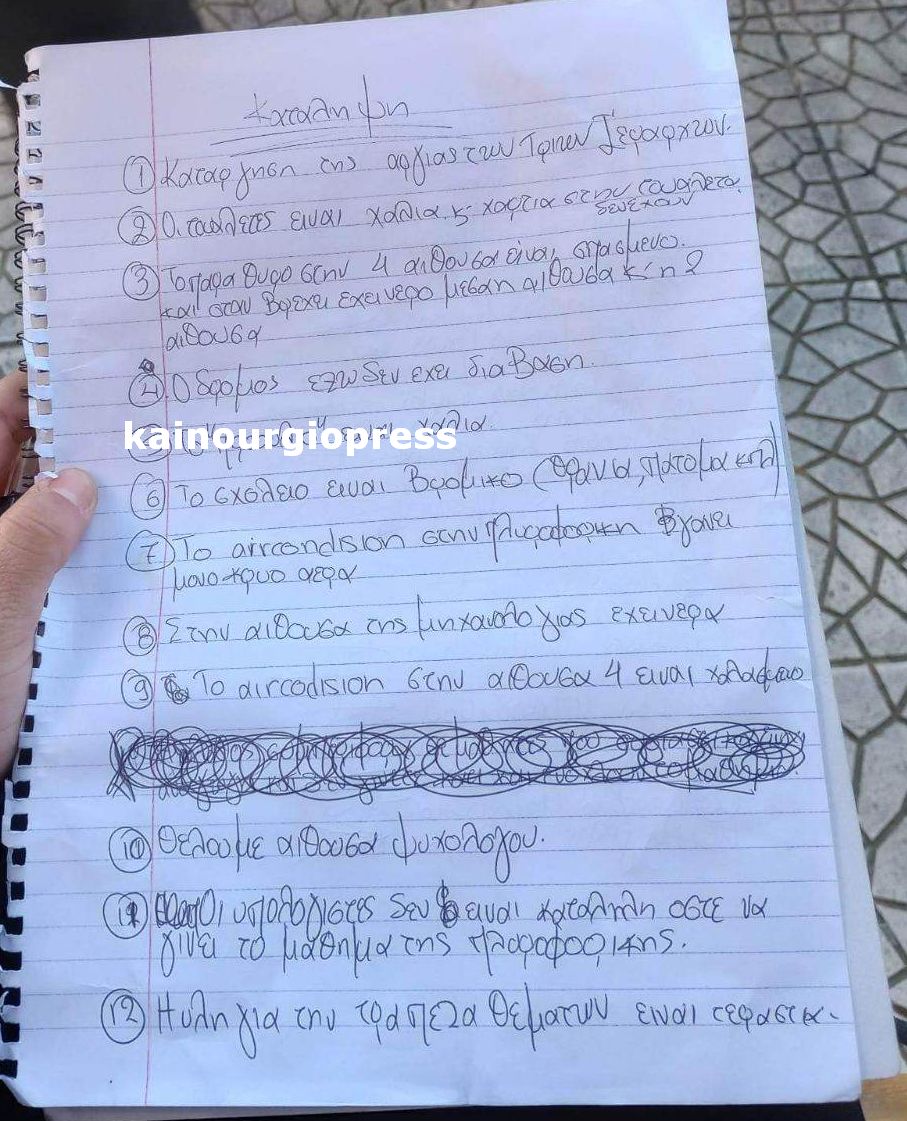 Καταληψη
① Καταργηση της αργιας των Τριων Ιεραρχων.
② Οι τουαλετες ειναι χαλια κ χαρτια στην τουαλετα
δεν εχουν
③ Το παραθυρο στην 4 αιθουσα είναι σπασμενο.
και οταν βρεχει εχει νερο μεσα η αιθουσα κ' η 2
αιθουσα
④ Ο δρομος εξω δεν εχει διαβαση.
kainourgiopress
χαλια.
⑥ Το σχολειο ειναι βρομικο (θρανια, πατομα κτλ)
⑦ Το aircondision στην πληροφορικη βγανει
μονο κρυο αερα
⑧ Στην αιθουσα της μηχανολογιας εχει νερα
⑨ Το aircodision στην αιθουσα 4 ειναι χαλασμενο
⑩ Θελουμε αιθουσα ψυχολογου.
⑪ Οι υπολογιστες δεν ειναι καταλληλη οστε να
γινει το μαθημα της πλοροφορικης.
⑫ Η υλη για την τραπεζα θεματων ειναι τεραστια.